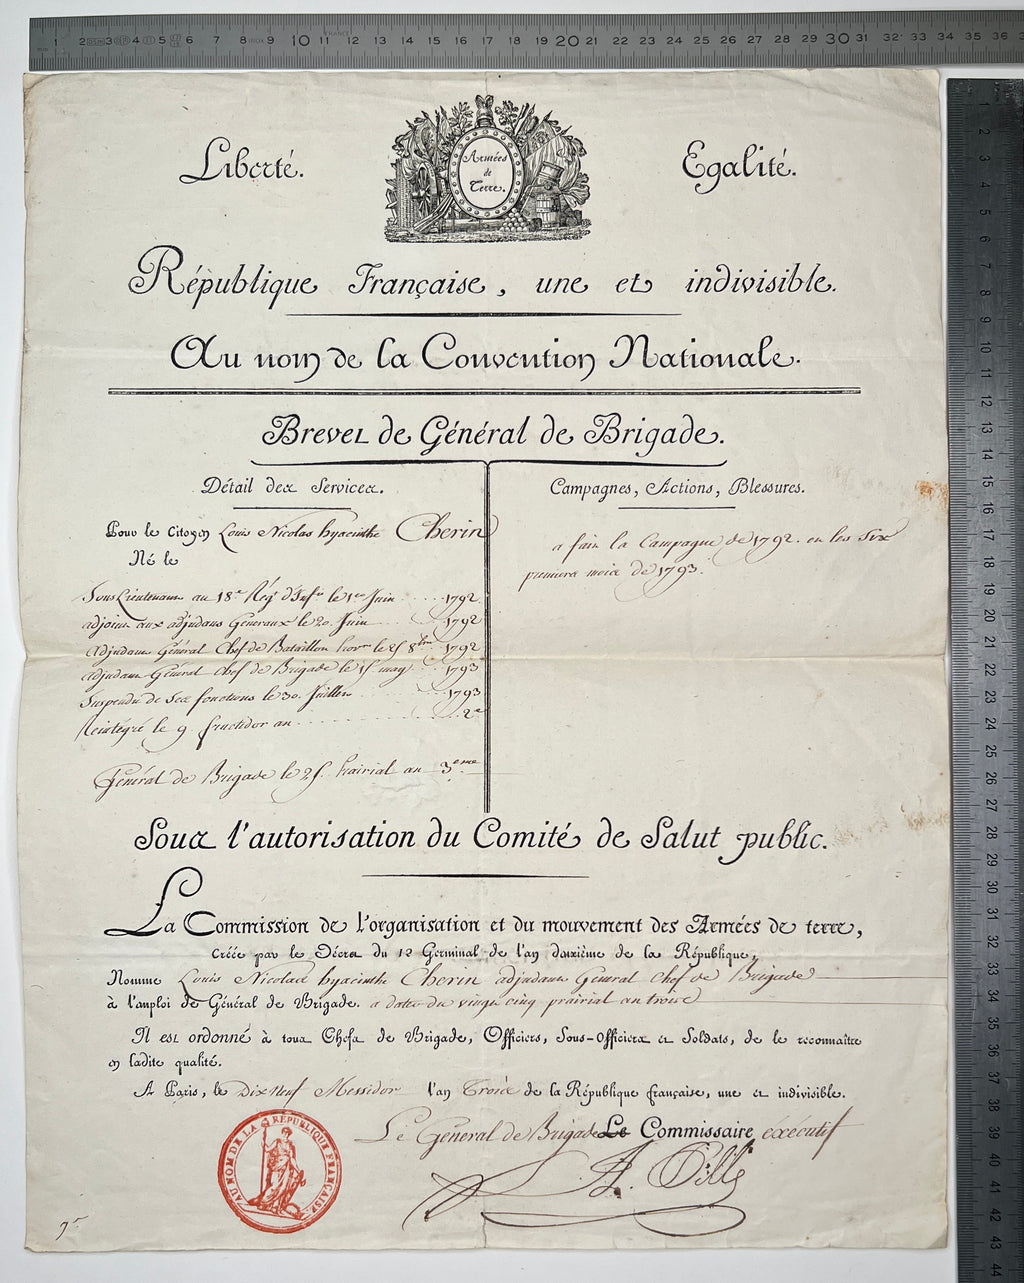 Liberté.
Armées
de
Terre.
Egalité.
République Française, une et indivisible.
Au nom de la Convention Nationale.
Brevet de Général de Brigade.
Détail des Services.
Pour le Citoyen Louis Nicolas hyacinthe Cherin
Né le
Sous Lieutenant au 18e Régt d'Infie le 1er Juin 1792
adjoint aux adjudans Généraux le 20. Juin 1792
adjudant Général Chef de Bataillon le 8bre 1792
adjudant Général Chef de Brigade le 15 may 1793
Suspendu de Ses fonctions le 30. Juillet 1793
Réintégré le 9 fructidor an 2e
Général de Brigade le 25. Prairial an 3eme
Campagnes, Actions, Blessures.
a fait la Campagne de 1792. et les Six
premiers mois de 1793.
Sous l'autorisation du Comité de Salut public.
La Commission de l'organisation et du mouvement des Armées de terre,
Créée par le Décret du 12 Germinal de l'an deuxième de la République,
Nomme Louis Nicolas hyacinthe Cherin adjudant Général Chef de Brigade
à l'emploi de Général de Brigade. a dater du vingt cinq prairial an trois
Il est ordonné à tous Chefs de Brigade, Officiers, Sous-Officiers et Soldats, de le reconnaître
en ladite qualité.
A Paris, le Dix neuf Messidor l'an Trois de la République française, une et indivisible.
Le Général de Brigade Le Commissaire exécutif
A. Pille
AU NOM DE LA RÉPUBLIQUE FRANÇAISE